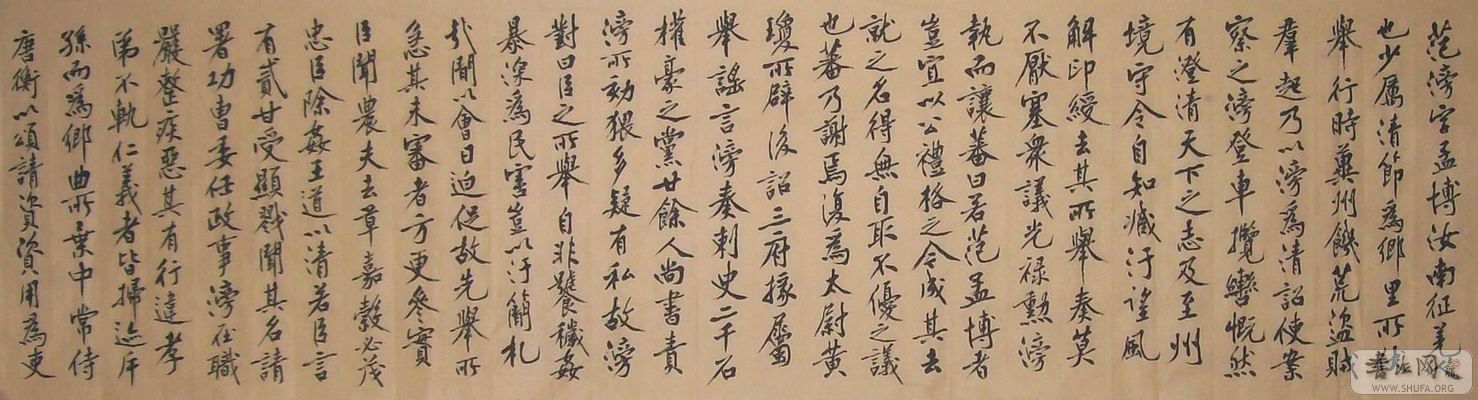 范滂字孟博汝南征羌
也少厲清節為鄉里所
舉行時冀州饑荒盜賊
羣起乃以滂為清詔使案
察之滂登車攬轡慨然
有澄清天下之志及至州
境守令自知臧汙望風
解印綬去其所舉奏莫
不厭塞衆議光祿勳滂
執而讓蕃曰若范孟博者
豈宜以公禮格之今成其去
就之名得無自取不優之議
也蕃乃謝焉復為太尉黃
瓊所辟後詔三府掾屬
舉謠言滂奏刺史二千石
權豪之黨廿餘人尚書責
滂所劾猥多疑有私故滂
對曰臣之所舉自非饕穢姦
暴深為民害豈以汙簡札
哉閒以會日迫促故先舉所
急其未審者方更參實
臣聞農夫去草嘉穀必茂
忠臣除姦王道以清若臣言
有貳甘受顯戮聞其名請
署功曹委任政事滂在職
嚴整疾惡其有行違孝
弟不軌仁義者皆掃迹斥
孫而為鄉曲所棄中常侍
唐衡以頌請資資用為吏
書法网
WWW.SHUFA.ORG